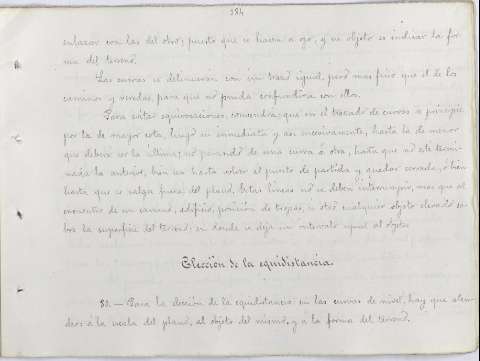 184
enlazar con las del otro; puesto que se hacen a ojo, y su objeto es indicar la for-
ma del terreno.
Las curvas se delinearán con un trazo igual, pero mas fino que el de los
caminos y veredas, para que no pueda confundirse con ellos.
Para evitar equivocaciones, convendrá que en el trazado de curvas se principie
por la de mayor cota, luego su inmediata y asi sucesivamente, hasta la de menor
que deberá ser la última; no pasando de una curva á otra, hasta que no esté termi-
nada la anterior, bien sea hasta volver al punto de partida y quedar cerrada, ó bien
hasta que se salga fuera del plano. Estas lineas no se deben interrumpir, mas que al
encuentro de un camino, edificio, posicion de tropas, ú otro cualquier objeto elevado so-
bre la superficie del terreno; en donde se deja un intervalo igual al objeto.
Elección de la equidistancia.
80. — Para la elección de la equidistancia en las curvas de nivel, hay que aten-
der á la escala del plano, al objeto del mismo, y a la forma del terreno.